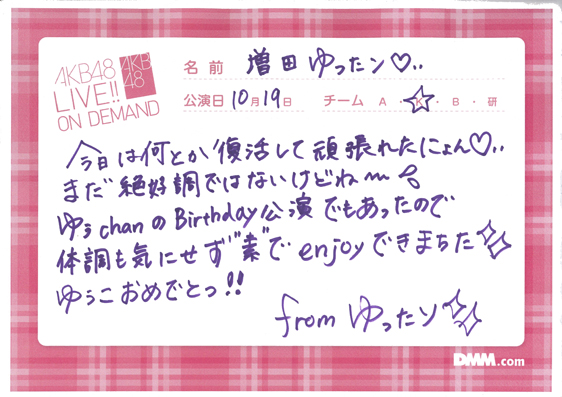 AKB48
LIVE!!
ON DEMAND
AKB
48
名前 増田 ゆったン♡..
公演日 10月19日 チーム A・K・B・研
今日は何とか復活して頑張れたにょん♡..
まだ絶好調ではないけどね〜
ゆぅchanのBirthday公演でもあったので
体調も気にせず"素"でenjoyできまちた
ゆぅこおめでとっ!!
from ゆったン
DMM.com